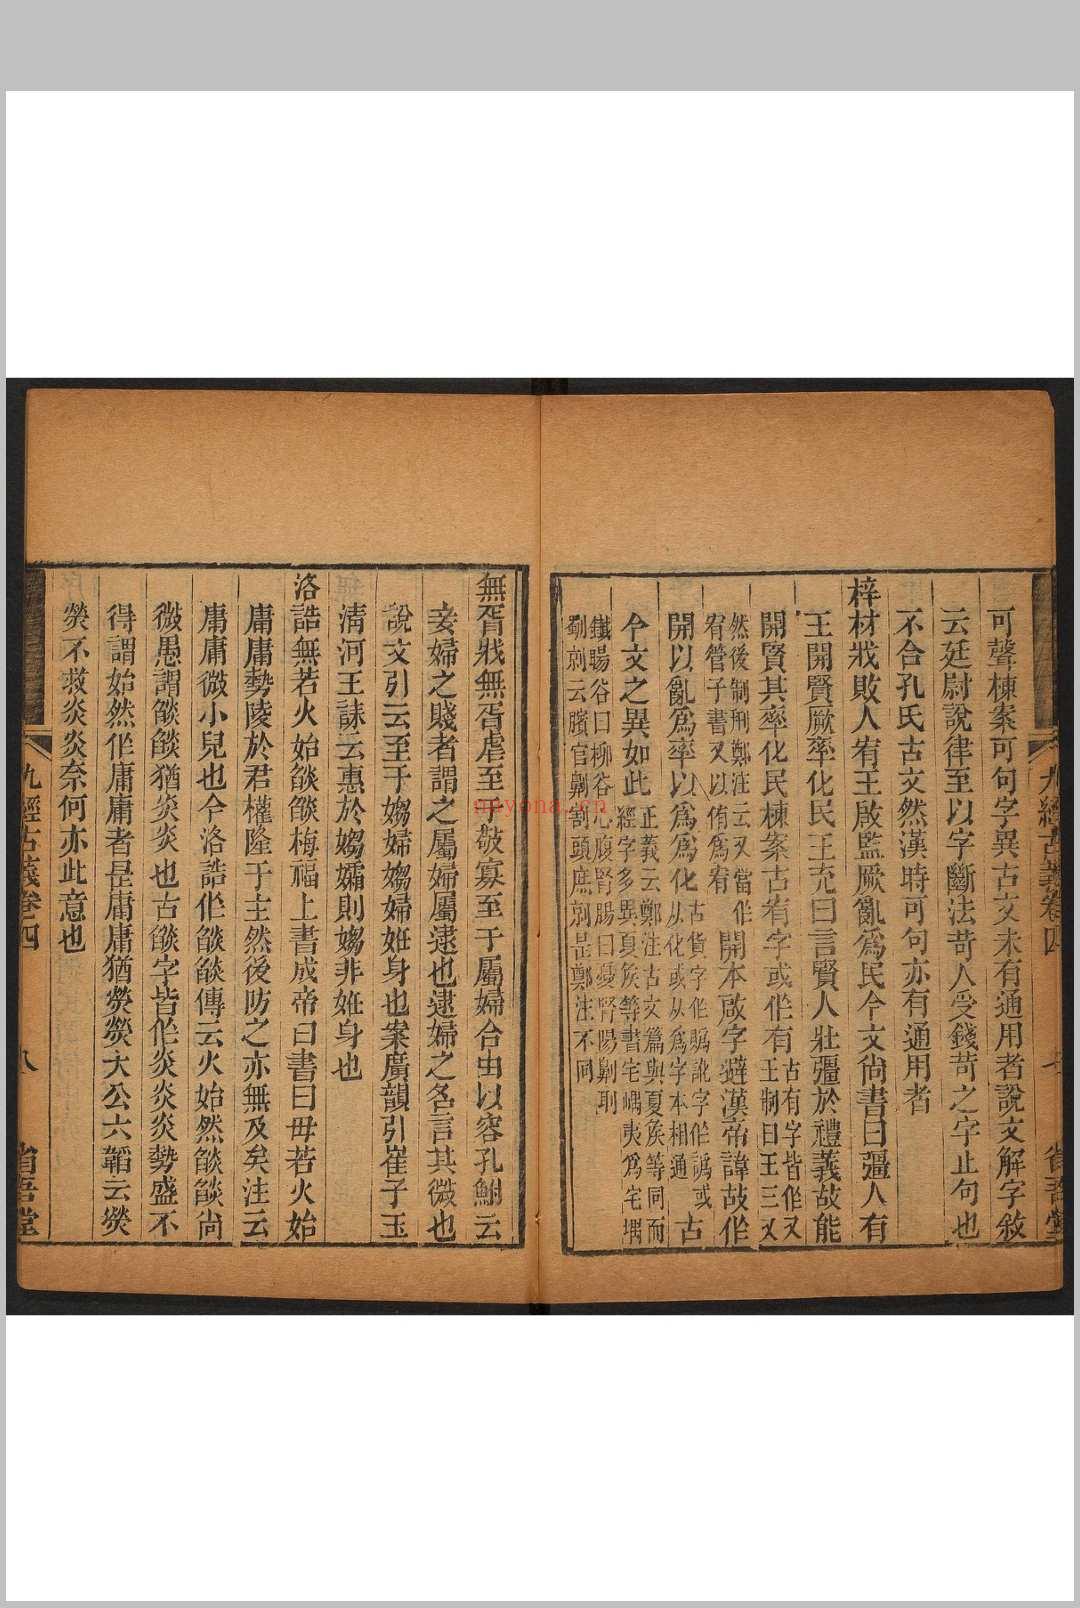 可聲棟案可句字異古文未有通用者說文解字敘
云廷尉說律至以字斷法苛人受錢苛之字止句也
不合孔氏古文然漢時可句亦有通用者
梓材戕敗人宥王啟監厥亂爲民今文尙書曰彊人有
王開賢厥率化民王充曰言賢人壯彊於禮義故能
開賢其率化民棟案古宥字或作有
古有字皆作又
王制曰王三又
然後制刑鄭注云又當作
宥管子書又以侑爲宥
開本啟字避漢帝諱故作
開以亂爲率以爲爲化
古貨字作䝯訛字作譌或
从化或从爲字本相通
古
今文之異如此
正義云鄭注古文篇與夏矦等同而
經字多異夏矦等書宅嵎夷爲宅堣
鐵暘谷曰柳谷心腹腎腸曰憂腎陽劓刵
劅剠云臏宮劓割頭庶剠是鄭注不同
九經古義卷四
七
省吾堂
無胥戕無胥虐至于敬寡至于屬婦合由以容孔鮒云
妾婦之賤者謂之屬婦屬逮也逮婦之名言其微也
說文引云至于媰婦媰婦妊身也案廣韻引崔子玉
淸河王誄云惠於媰孀則媰非妊身也
洛誥無若火始燄燄梅福上書成帝曰書曰毋若火始
庸庸勢陵於君權隆于主然後防之亦無及矣注云
庸庸微小皃也今洛誥作燄燄傳云火始然燄燄尙
微愚謂燄燄猶炎炎也古燄字皆作炎炎炎勢盛不
得謂始然作庸庸者是庸庸猶熒熒大公六韜云熒
熒不救炎炎奈何亦此意也
九經古義卷四
八
省吾堂
nnyona.cn